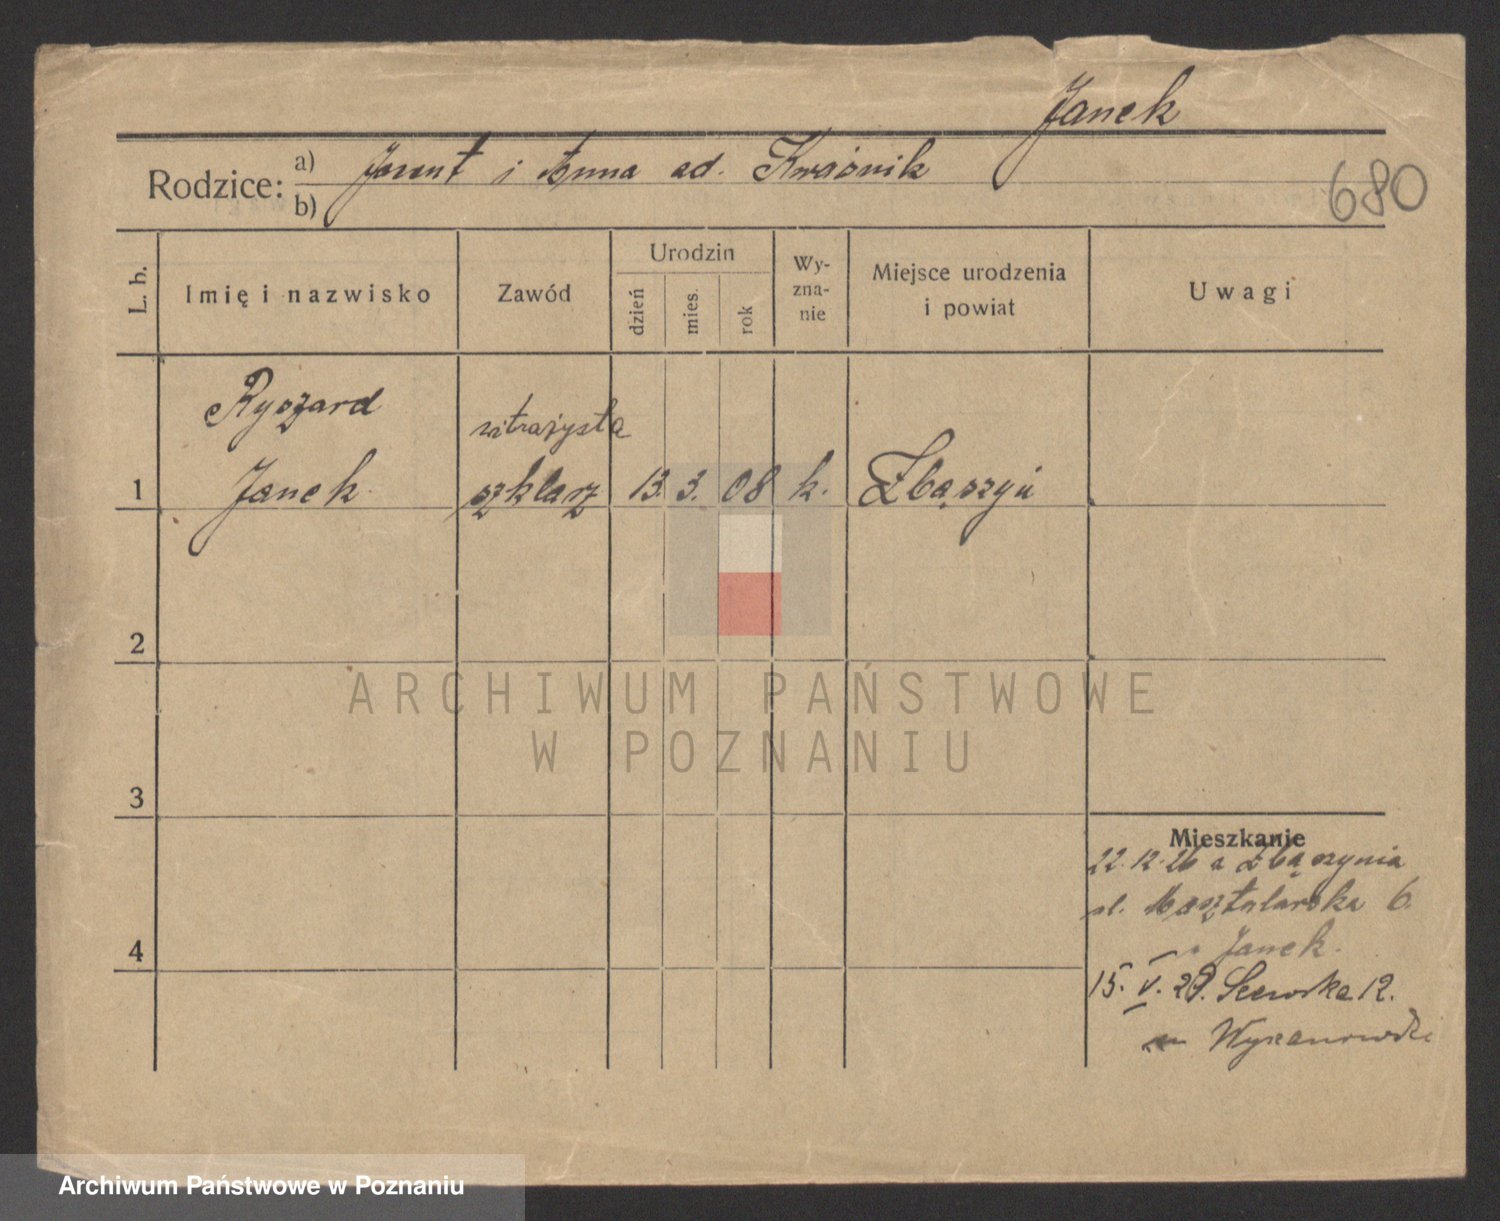 Janek
Rodzice: a) i Anna
b)
680
L. b.
Imię i nazwisko
Zawód
Urodzin
dzień
mies.
rok
Wy-
zna-
nie
Miejsce urodzenia
i powiat
Uwagi
Ryszard
witrażysta
1 Janek szklarz 13. 3. 08 k. Zbąszyń
2
ARCHIWUM PAŃSTWOWE
W POZNANIU
3
4
Mieszkanie
22.12.26 z Zbąszynia
ul. Masztalarska 6.
Janek.
15. V. 29. 12.
Archiwum Państwowe w Poznaniu